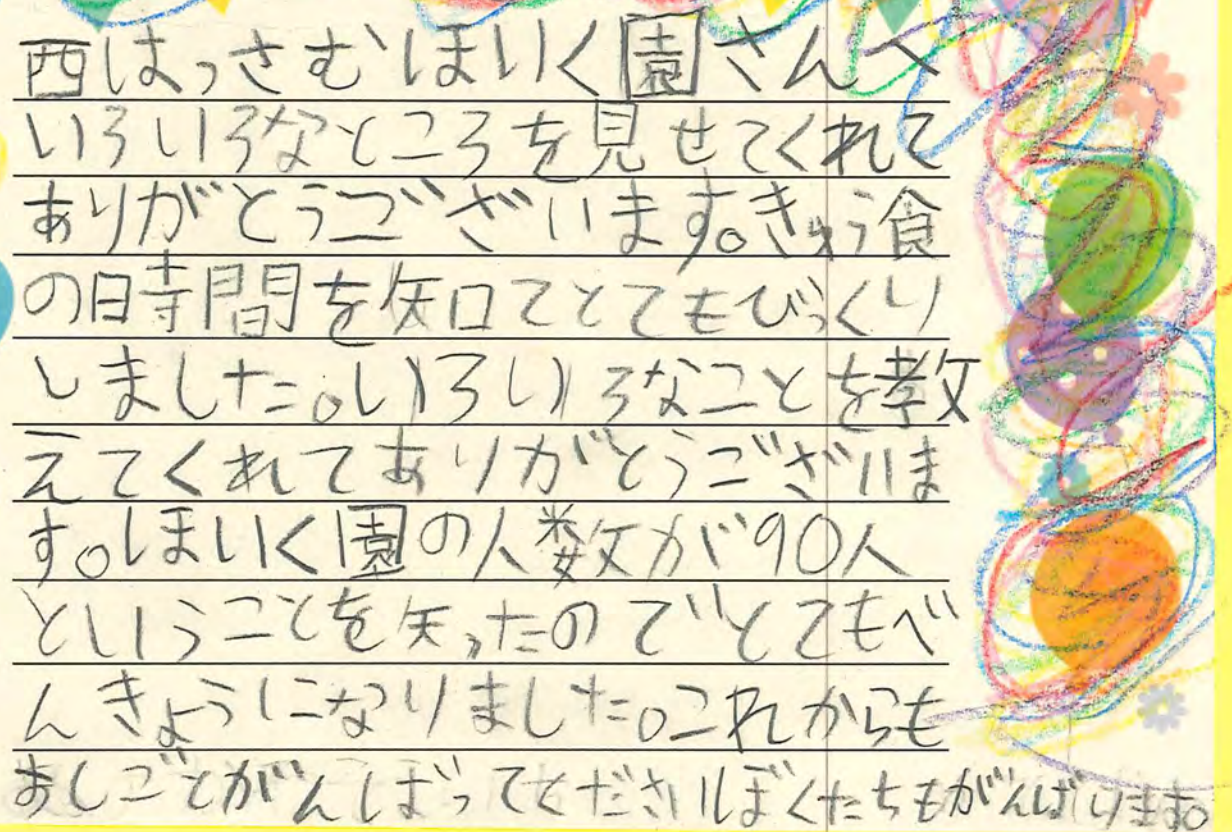 西はっさむほいく園さんへ
いろいろなところを見せてくれて
ありがとうございます。きゅう食
の時間を知てとてもびっくり
しました。いろいろなことを教
えてくれてありがとうございま
す。ほいく園の人数が90人
ということを矢ったのでとてもべ
んきょうになりました。これからも
おしごとがんばってくださいぼくたちもがんばります。